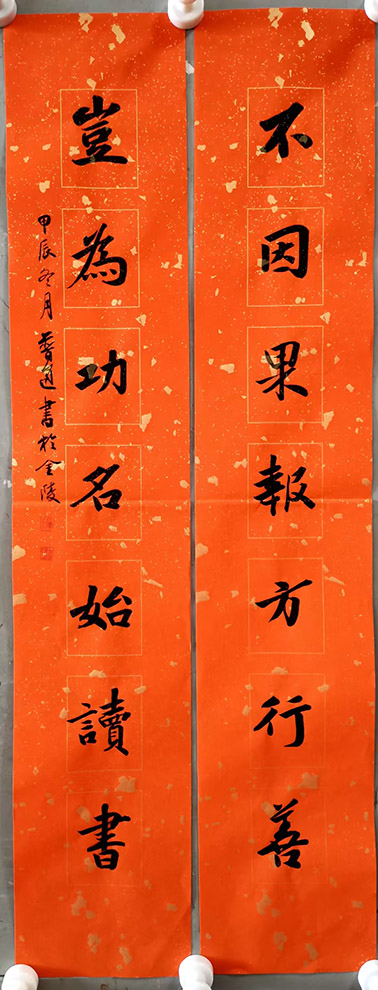 不因果報方行善
豈為功名始讀書
甲辰冬月書於金陵